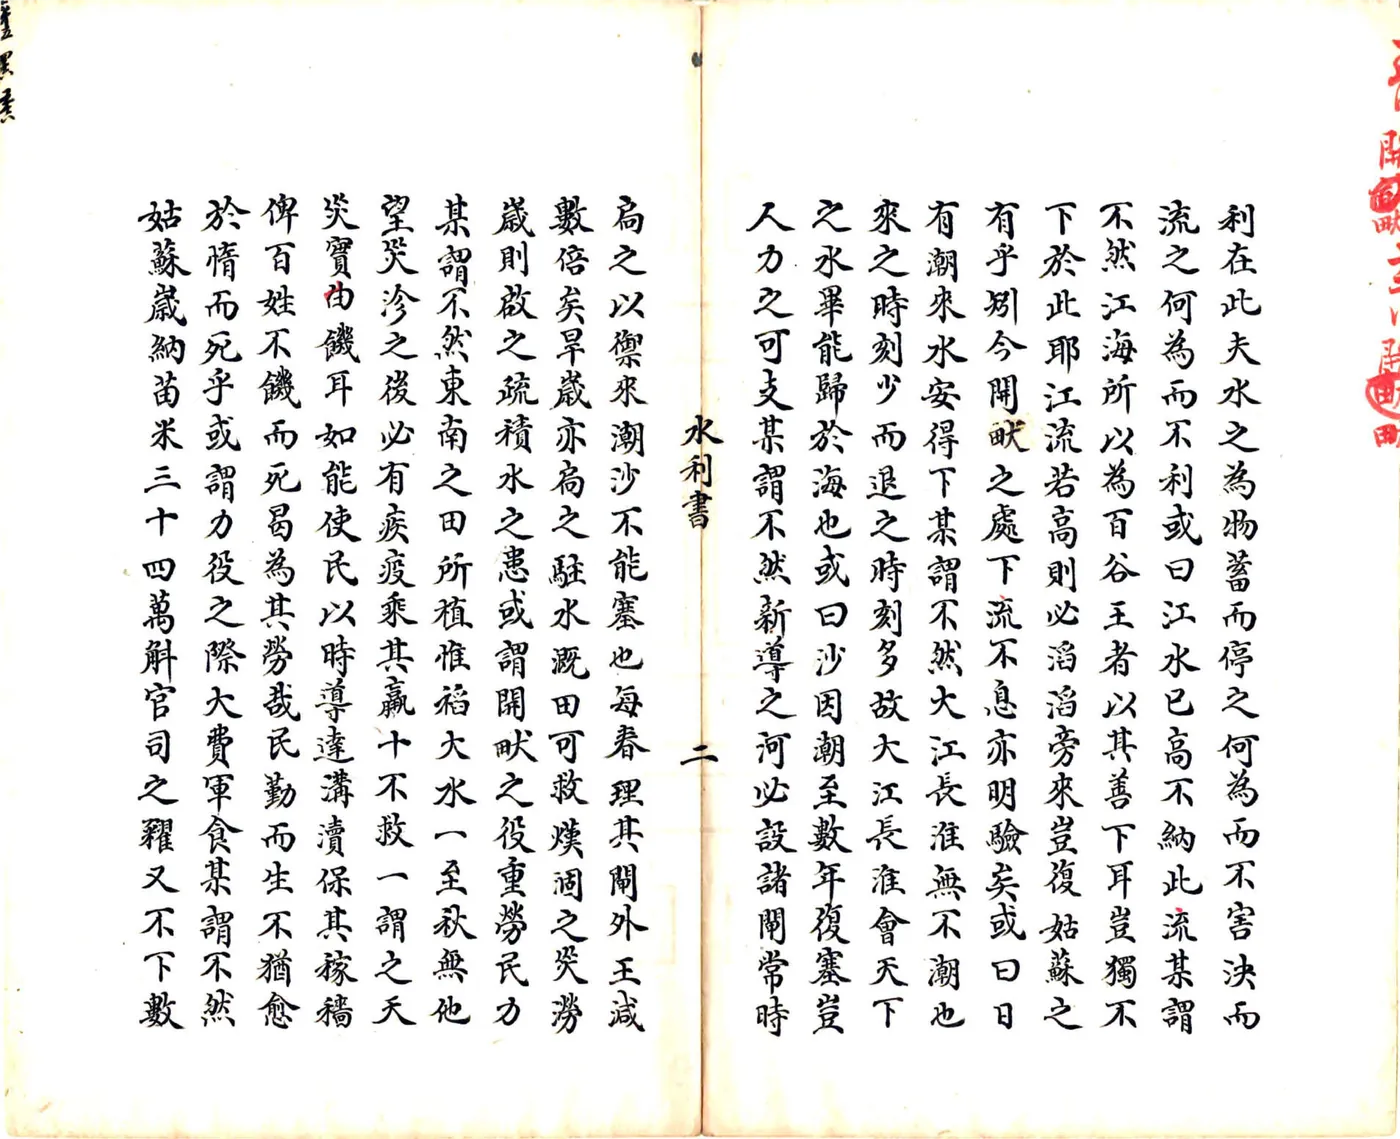 利在此夫水之為物蓄而停之何為而不害決而
流之何為而不利或曰江水已高不納此流某謂
不然江海所以為百谷王者以其善下耳豈獨不
下於此耶江流若高則必滔滔旁來豈復姑蘇之
有乎矧今開畎之處下流不息亦明驗矣或曰日
有潮來水安得下某謂不然大江長淮無不潮也
來之時刻少而退之時刻多故大江長淮會天下
之水畢能歸於海也或曰沙因潮至數年復塞豈
人力之可支某謂不然新導之河必設諸閘常時
水利書 二
扃之以禦來潮沙不能塞也每春理其閘外王減
數倍矣旱歲亦扃之駐水溉田可救熯涸之災澇
歲則啟之疏積水之患或謂開畎之役重勞民力
某謂不然東南之田所植惟稻大水一至秋無他
望災沴之後必有疾疫乘其羸十不救一謂之天
災實由饑耳如能使民以時導達溝瀆保其稼穡
俾百姓不饑而死曷為其勞哉民勤而生不猶愈
於惰而死乎或謂力役之際大費軍食某謂不然
姑蘇歲納苗米三十四萬斛官司之糴又不下數